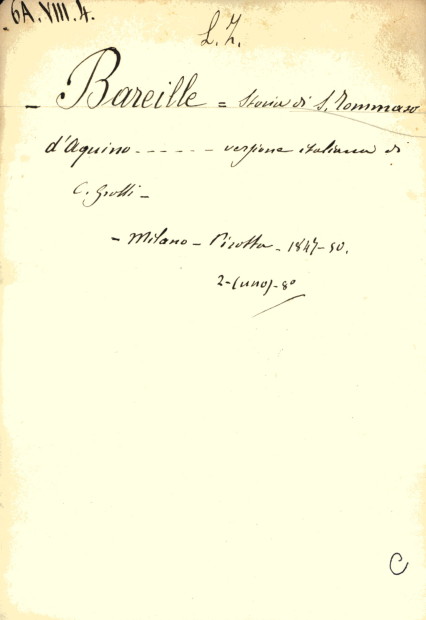 6A.VIII.4.
L.Z.
- Bareille = Storia di S. Tommaso
d'Aquino - - - - - versione italiana di
C. Grolli -
- Milano - Pirotta - 1847-50.
2-(uno)-8°
C